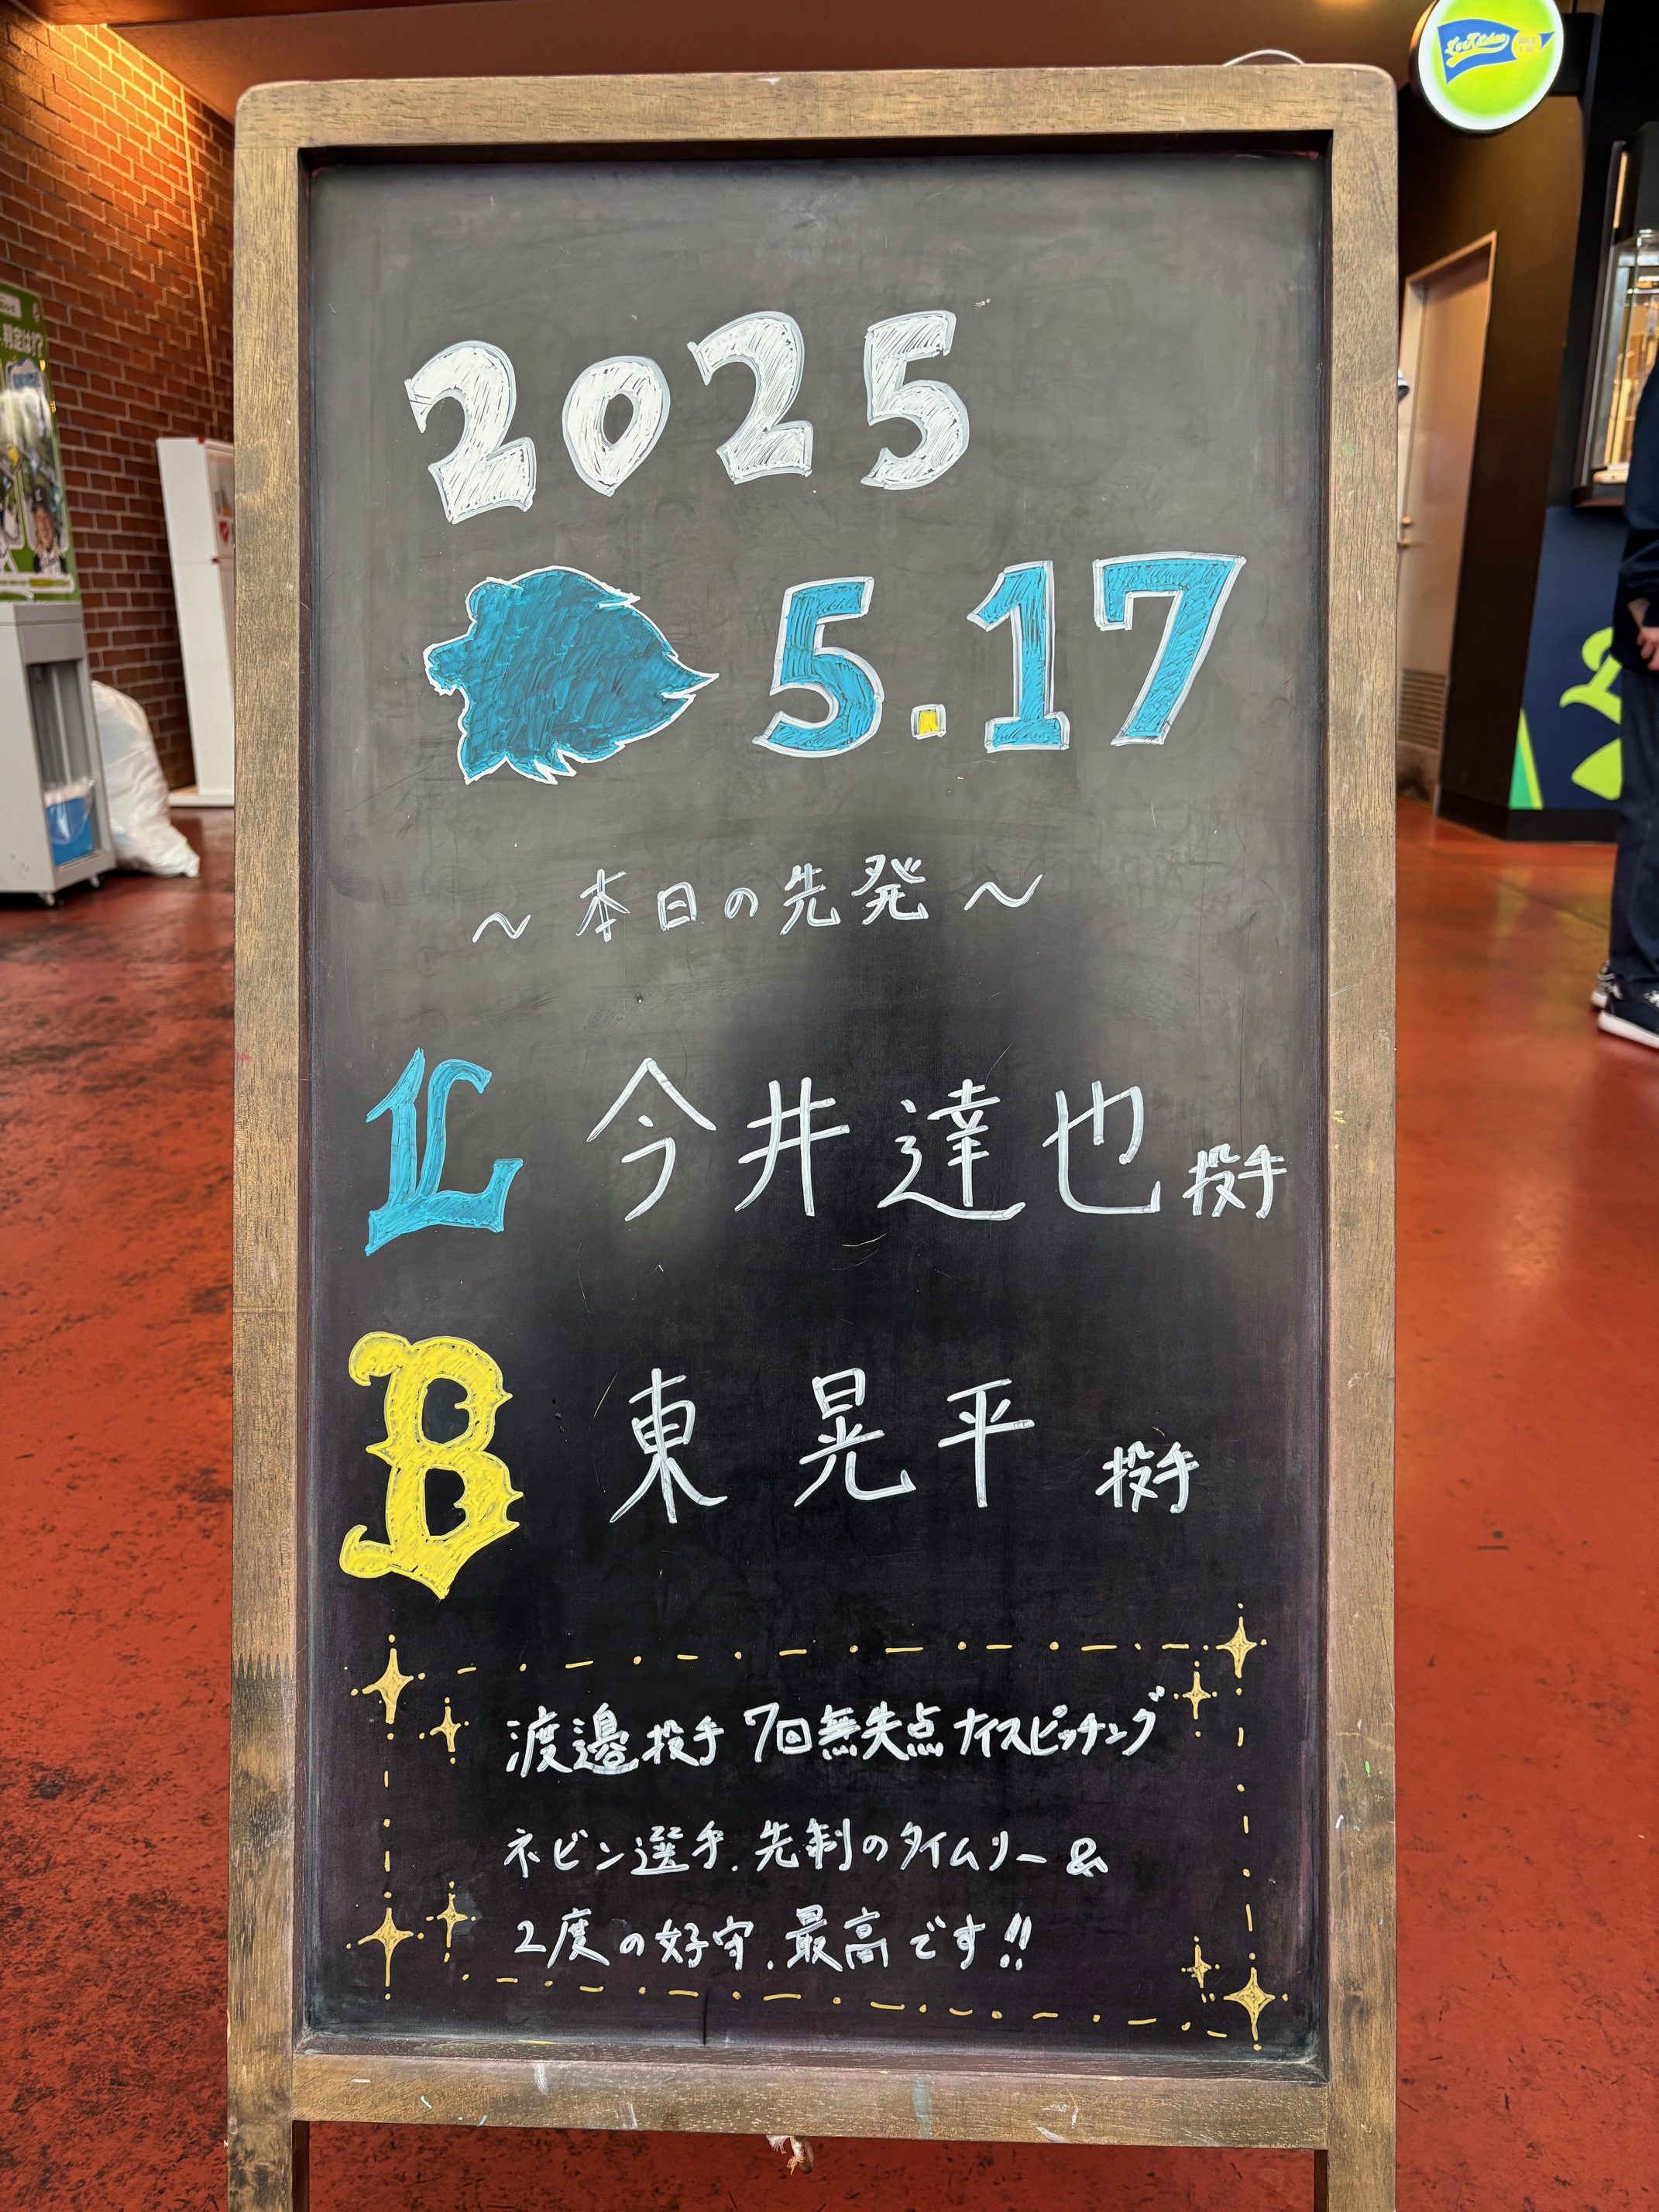 2025
5.17
～本日の先発～
L 今井達也投手
B 東 晃平 投手
渡邊投手 7回無失点ナイスピッチング
ネビン選手、先制のタイムリー &
2度の好守、最高です!!
判定は!?